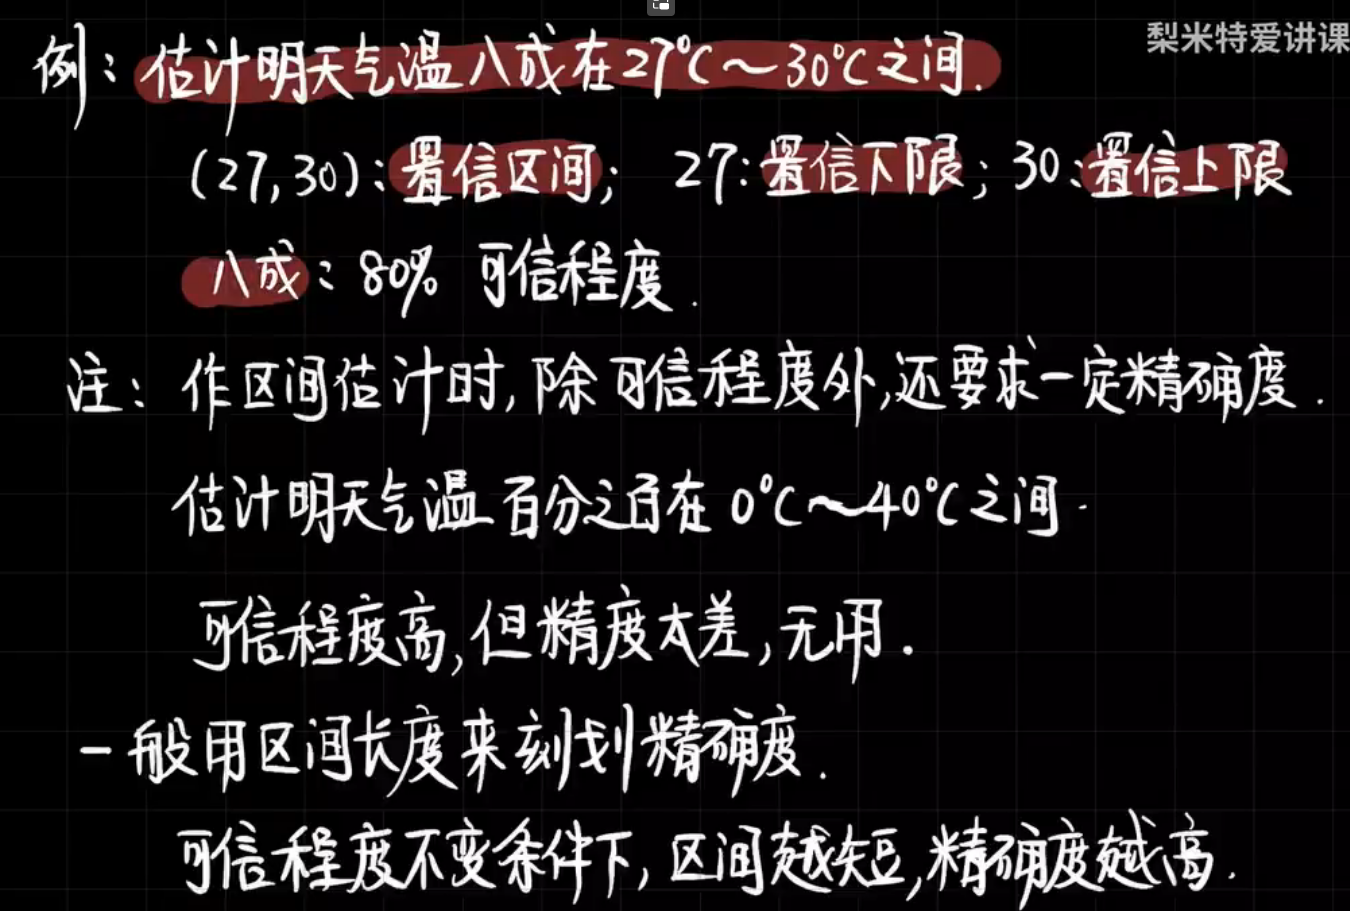 梨米特爱讲课
例：估计明天气温八成在27℃～30℃之间.
(27,30)：置信区间； 27:置信下限；30:置信上限
八成：80% 可信程度.
注：作区间估计时,除可信程度外,还要求一定精确度.
估计明天气温百分之百在0℃～40℃之间.
可信程度高,但精度太差,无用.
一般用区间长度来刻划精确度.
可信程度不变条件下,区间越短,精确度越高.